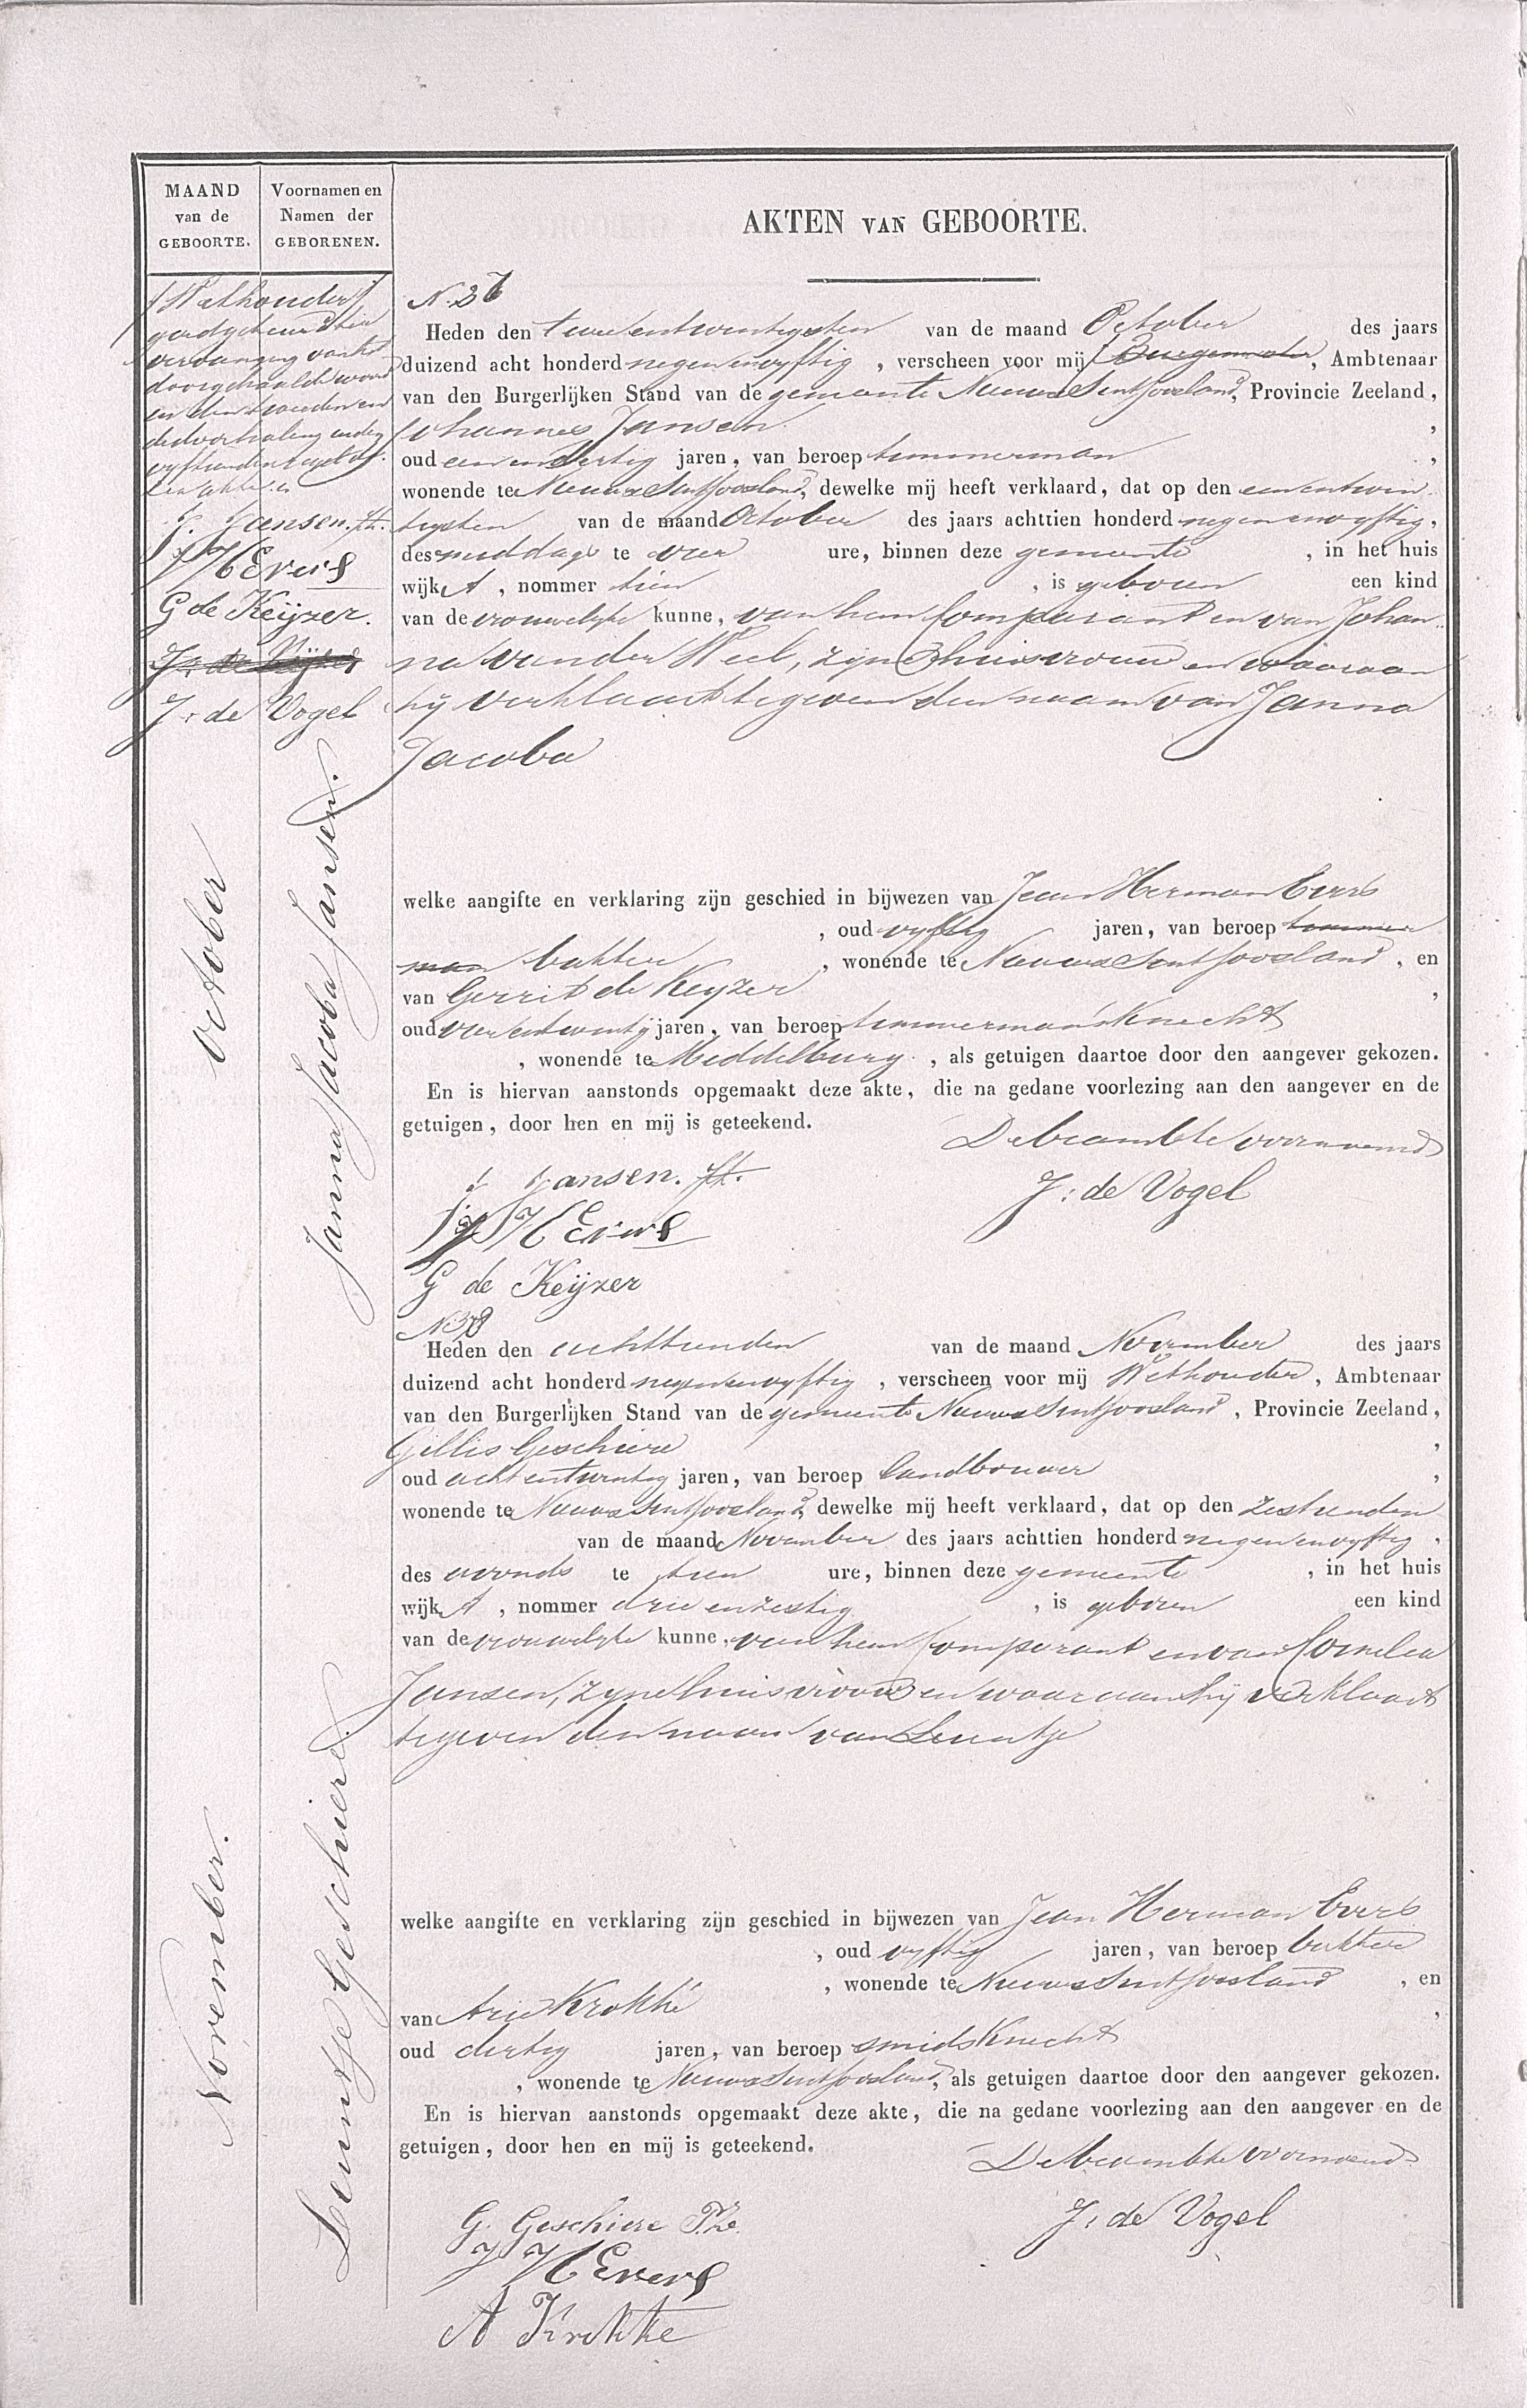 MAAND
van de
GEBOORTE.
Voornamen en
Namen der
GEBORENEN.
AKTEN VAN GEBOORTE.
Wethouder
goedgekeurd
vervanging van het
doorgehaalde woord
J. Jansen. Jz.
J H Evers
G de Keijzer.
J: de Vogel
October
Janna Jacoba Jansen.
N. 37
Heden den tweeentwintigsten van de maand October des jaars
duizend acht honderd negenenvyftig, verscheen voor mij Burgemeester, Ambtenaar
van den Burgerlijken Stand van de gemeente Nieuw en Sint Joosland, Provincie Zeeland,
Johannes Jansen,
oud eenendertig jaren, van beroep timmerman,
wonende te Nieuw en Sint Joosland, dewelke mij heeft verklaard, dat op den eenentwin
tigsten van de maand October des jaars achttien honderd negenenvyftig,
des middags te vier ure, binnen deze gemeente, in het huis
wijk A, nommer tien, is geboren een kind
van de vrouwelyke kunne, van hem Comparant en van Johan
na van der Weel, zyne huisvrouw en waaraan
hij verklaart te geven den naam van Janna
Jacoba
welke aangifte en verklaring zijn geschied in bijwezen van Jean Herman Evers
, oud vyftig jaren, van beroep timmer
man bakker, wonende te Nieuw en Sint Joosland, en
van Gerrit de Keyzer,
oud vierentwintig jaren, van beroep timmermansknecht
, wonende te Middelburg, als getuigen daartoe door den aangever gekozen.
En is hiervan aanstonds opgemaakt deze akte, die na gedane voorlezing aan den aangever en de
getuigen, door hen en mij is geteekend.
De beambte voornoemd
J Jansen. Jz.
J: de Vogel
J H Evers
G de Keijzer
November.
Leuntje Geschiere.
N 38
Heden den achttienden van de maand November des jaars
duizend acht honderd negenenvyftig, verscheen voor mij Wethouder, Ambtenaar
van den Burgerlijken Stand van de gemeente Nieuw en Sint Joosland, Provincie Zeeland,
Gillis Geschiere,
oud achtentwintig jaren, van beroep landbouwer,
wonende te Nieuw en Sint Joosland, dewelke mij heeft verklaard, dat op den zestienden
van de maand November des jaars achttien honderd negenenvyftig,
des avonds te tien ure, binnen deze gemeente, in het huis
wijk A, nommer drieenzestig, is geboren een kind
van de vrouwelyke kunne, van hem Comparant en van Cornelia
Jansen, zyne huisvrouw en waaraan hij verklaart
te geven den naam van Leuntje
welke aangifte en verklaring zijn geschied in bijwezen van Jean Herman Evers
, oud vyftig jaren, van beroep bakker
, wonende te Nieuw en Sint Joosland, en
van Arie Krokké,
oud dertig jaren, van beroep smidsknecht
, wonende te Nieuw en Sint Joosland, als getuigen daartoe door den aangever gekozen.
En is hiervan aanstonds opgemaakt deze akte, die na gedane voorlezing aan den aangever en de
getuigen, door hen en mij is geteekend.
De beambte voornoemd
G. Geschiere Pz.
J: de Vogel
J H Evers
A Krokke